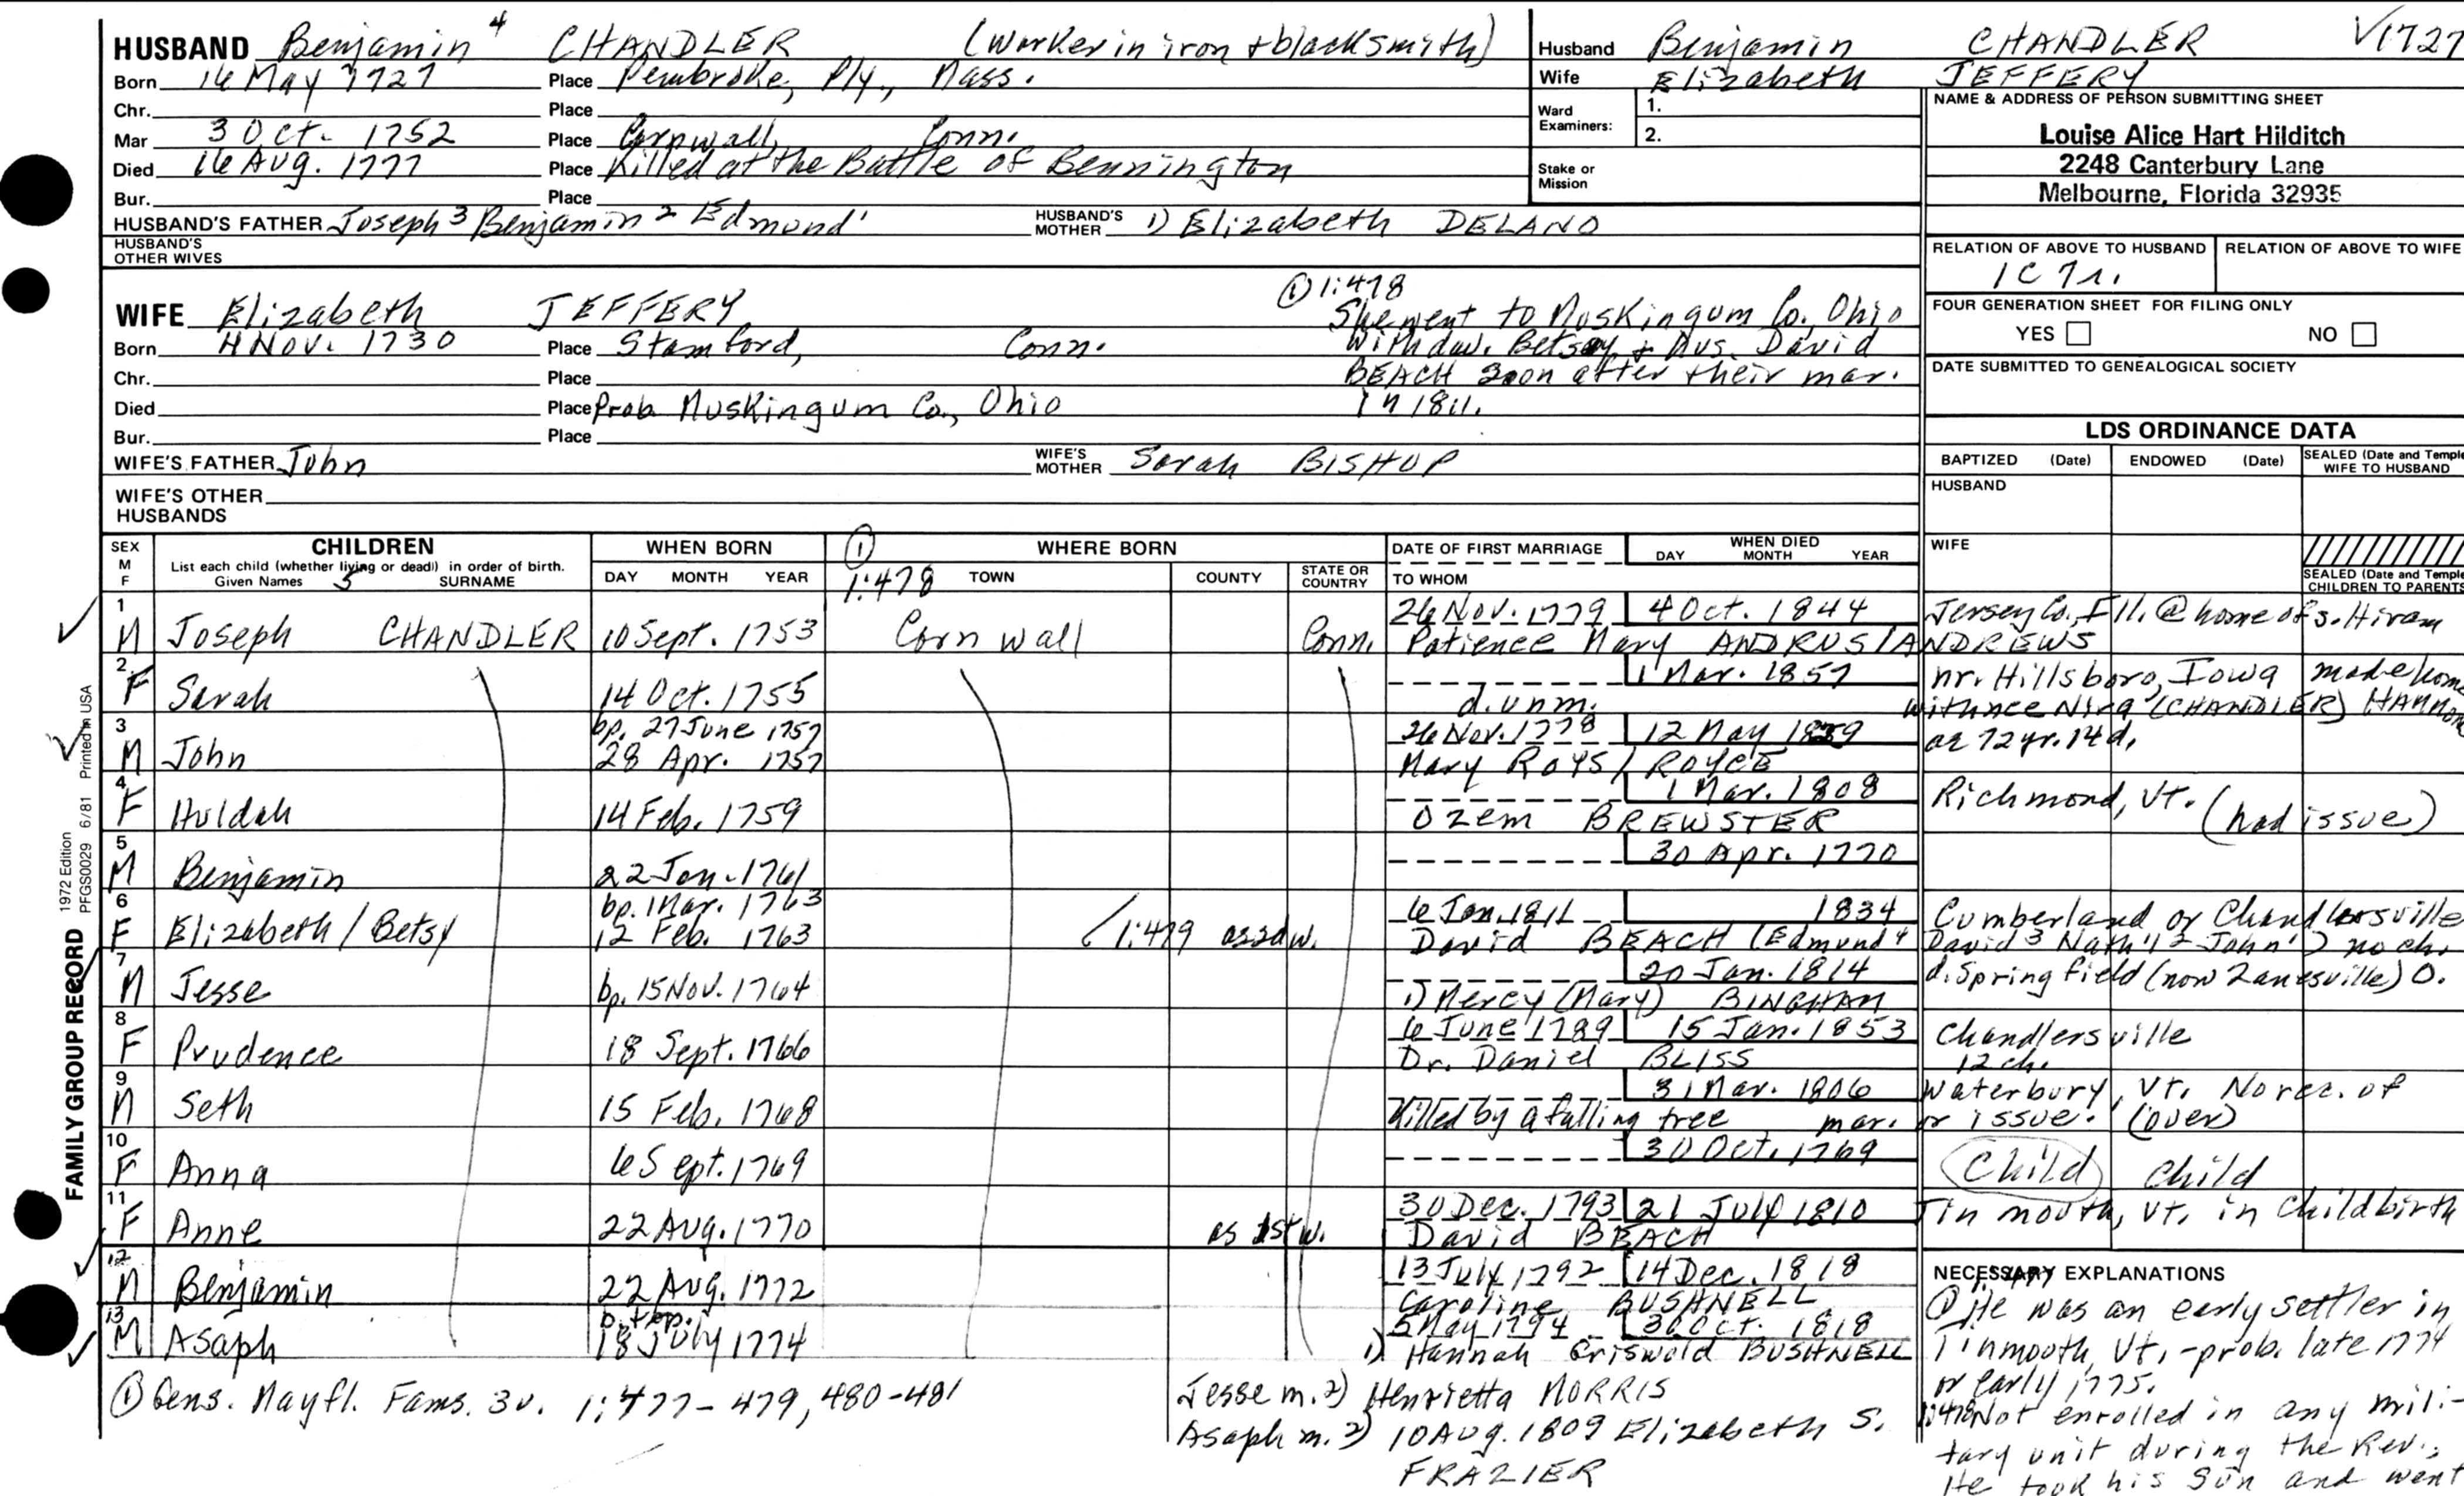 HUSBAND Benjamin 4 CHANDLER (worker in iron + blacksmith)
Born 16 May 1727 Place Pembroke, Ply., Mass.
Chr. Place
Mar 3 Oct. 1752 Place Cornwall, Conn.
Died 16 Aug. 1777 Place Killed at the Battle of Bennington
Bur. Place
HUSBAND'S FATHER Joseph 3 Benjamin 2 Edmond 1 HUSBAND'S MOTHER 1) Elizabeth DELANO
HUSBAND'S OTHER WIVES
Husband Benjamin CHANDLER V1727
Wife Elizabeth JEFFERY
Ward Examiners: 1.
2.
Stake or Mission
NAME & ADDRESS OF PERSON SUBMITTING SHEET
Louise Alice Hart Hilditch
2248 Canterbury Lane
Melbourne, Florida 32935
RELATION OF ABOVE TO HUSBAND RELATION OF ABOVE TO WIFE
1C 7r.
FOUR GENERATION SHEET FOR FILING ONLY
YES NO
DATE SUBMITTED TO GENEALOGICAL SOCIETY
WIFE Elizabeth JEFFERY
Born 4 Nov. 1730 Place Stamford, Conn.
Chr. Place
Died Place Prob. Muskingum Co., Ohio
Bur. Place
① 1:478
She went to Muskingum Co. Ohio
with dau. Betsey + hus. David
BEACH soon after their mar.
in 1811.
WIFE'S FATHER John WIFE'S MOTHER Sarah BISHOP
WIFE'S OTHER HUSBANDS
LDS ORDINANCE DATA
BAPTIZED (Date) ENDOWED (Date) SEALED (Date and Temple WIFE TO HUSBAND
HUSBAND
WIFE
SEALED (Date and Temple CHILDREN TO PARENTS
SEX M F CHILDREN
List each child (whether living or dead) in order of birth.
Given Names 5 SURNAME
WHEN BORN
DAY MONTH YEAR
① 1:478 WHERE BORN
TOWN COUNTY STATE OR COUNTRY
DATE OF FIRST MARRIAGE
TO WHOM
WHEN DIED
DAY MONTH YEAR
1 26 Nov. 1779 4 Oct. 1844 Jersey Co., Ill. @ home of s. Hiram
M Joseph CHANDLER 10 Sept. 1753 Cornwall Conn. Patience Mary ANDRUS/ANDREWS
2 1 Mar. 1857 nr. Hillsboro, Iowa made hom
F Sarah 14 Oct. 1755 d. unm. with nce (CHANDLER)
3 bp. 27 June 1757 26 Nov. 1778 12 May 1829 ae 72 yr. 14 d.
M John 28 Apr. 1757 Mary ROYS / ROYCE
4 1 Mar. 1808 Richmond, Vt. (had issue)
F Huldah 14 Feb. 1759 Ozem BREWSTER
5 30 Apr. 1770
M Benjamin 22 Jan. 1761
6 bp. 1 Mar. 1763 6 Jan. 1811 1834 Cumberland or Chandlersville
F Elizabeth / Betsy 12 Feb. 1763 1:479 as 2d w. David BEACH (Edmund 4 David 3 Nath'l 2 John 1) no ch.
7 20 Jan. 1814 d. Springfield (now Zanesville) O.
M Jesse bp. 15 Nov. 1764 1) Mercy (Mary) BINGHAM
8 6 June 1789 15 Jan. 1853 Chandlersville
F Prudence 18 Sept. 1766 Dr. Daniel BLISS 12 ch.
9 31 Mar. 1806 Waterbury, Vt. No rec. of
M Seth 15 Feb. 1768 Killed by a falling tree mar. or issue. (over)
10 30 Oct. 1769
F Anna 6 Sept. 1769 Child Child
11 30 Dec. 1793 21 July 1810 Tinmouth, Vt. in childbirth
F Anne 22 Aug. 1770 as 1st w. David BEACH
12 13 July 1792 14 Dec. 1818
M Benjamin 22 Aug. 1772 Caroline BUSHNELL
13 b. + bp. 5 May 1794 Oct. 1818
M Asaph 18 July 1774 1) Hannah Griswold BUSHNELL
① Gens. Mayfl. Fams. 3v. 1:477-479, 480-481
Jesse m. 2) Henrietta MORRIS
Asaph m. 2) 10 Aug. 1809 Elizabeth S.
FRAZIER
NECESSARY EXPLANATIONS
① He was an early settler in
Tinmouth, Vt. - prob. late 1774
or early 1775.
Not enrolled in any mili-
tary unit during the Rev.,
He took his gun and went
FAMILY GROUP RECORD 1972 Edition PFGS0029 6/81 Printed in USA